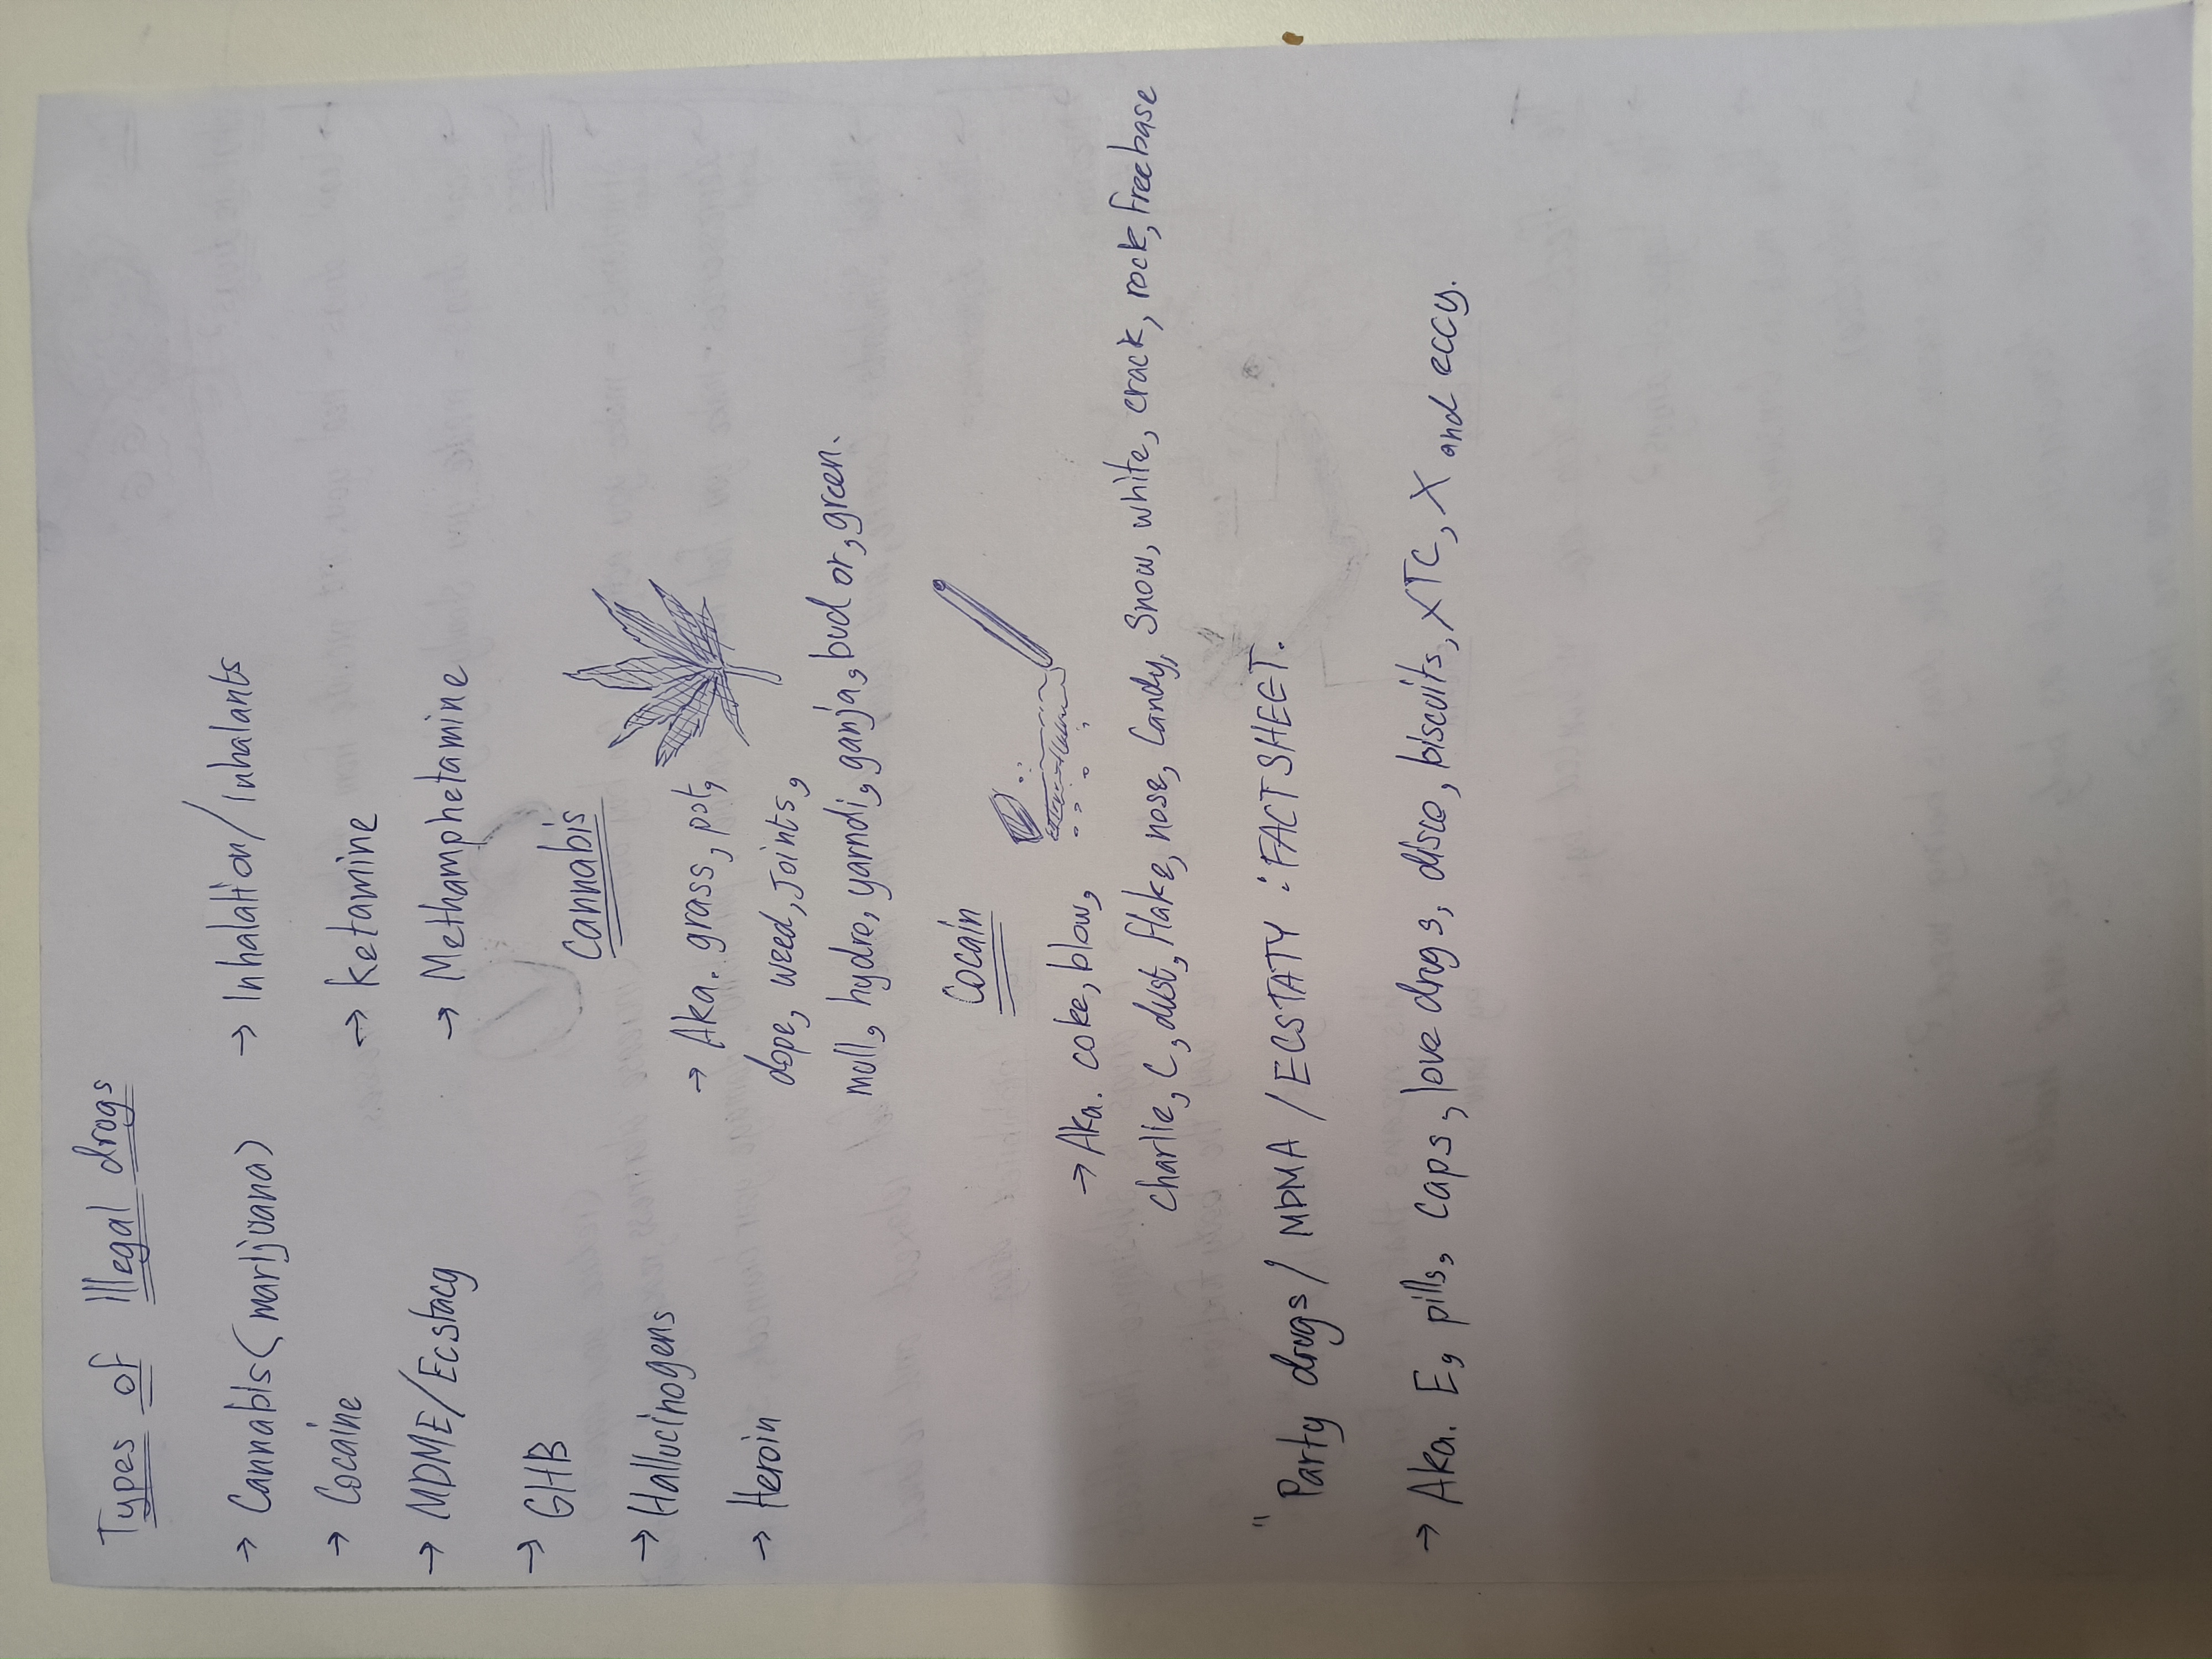 Types of Illegal drugs
→ Cannabis (marijuana)
→ Cocaine
→ MDME/Ecstacy
→ GHB
→ Hallucinogens
→ Heroin
→ Inhalation/Inhalants
→ Ketamine
→ Methamphetamine
Cannabis
→ Aka. grass, pot,
dope, weed, Joints,
mull, hydro, yarndi, ganja, bud or, green.
Cocain
→ Aka. coke, blow,
Charlie, C, dust, flake, nose, Candy, Snow, white, crack, rock, freebase
" Party drugs / MDMA / ECSTATY : FACT SHEET.
→ Aka. E, pills, caps, love drugs, disco, biscuits, XTC, X and eccy.